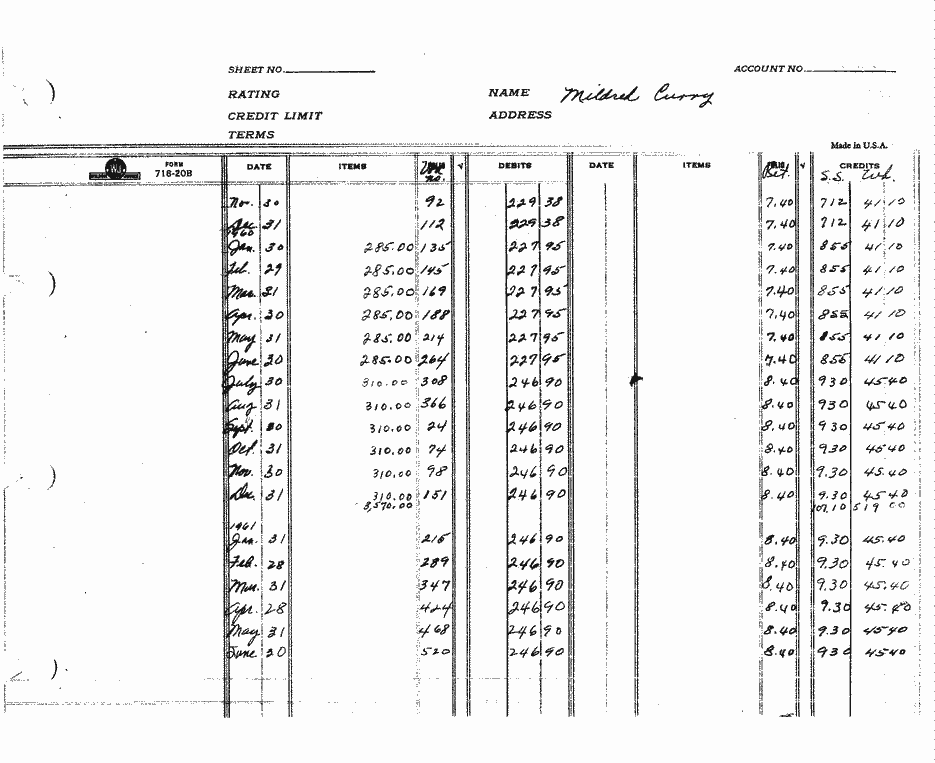 SHEET NO. ACCOUNT NO.
RATING NAME Mildred Curry
CREDIT LIMIT ADDRESS
TERMS
Made in U.S.A.
FORM 718-20B DATE ITEMS no. √ DEBITS DATE ITEMS Ret. √ CREDITS S.S. Wh.
Nov. 30 92 229 38 7.40 712 41 10
Dec 31 112 229 38 7.40 712 41 10
1960
Jan. 30 285.00 135 227 95 7.40 855 41 10
Feb. 29 285.00 145 227 95 7.40 855 41 10
Mar. 31 285.00 169 227 95 7.40 855 41 10
Apr. 30 285.00 188 227 95 7.40 855 41 10
May 31 285.00 214 227 95 7.40 855 41 10
June 30 285.00 264 227 95 7.40 855 41 10
July 30 310.00 308 246 90 8.40 930 45 40
Aug 31 310.00 366 246 90 8.40 930 45 40
Sept. 30 310.00 24 246 90 8.40 930 45.40
Oct. 31 310.00 74 246 90 8.40 930 45 40
Nov. 30 310.00 98 246 90 8.40 9.30 45.40
Dec. 31 310.00 151 246 90 8.40 9.30 45 40
3,570.00 107.10 519 00
1961
Jan. 31 215 246 90 8.40 9.30 45.40
Feb. 28 289 246 90 8.40 9.30 45.40
Mar. 31 347 246 90 8.40 9.30 45.40
Apr. 28 424 246 90 8.40 9.30 45.40
May 31 468 246 90 8.40 9.30 45 40
June 30 520 246 90 8.40 930 45 40